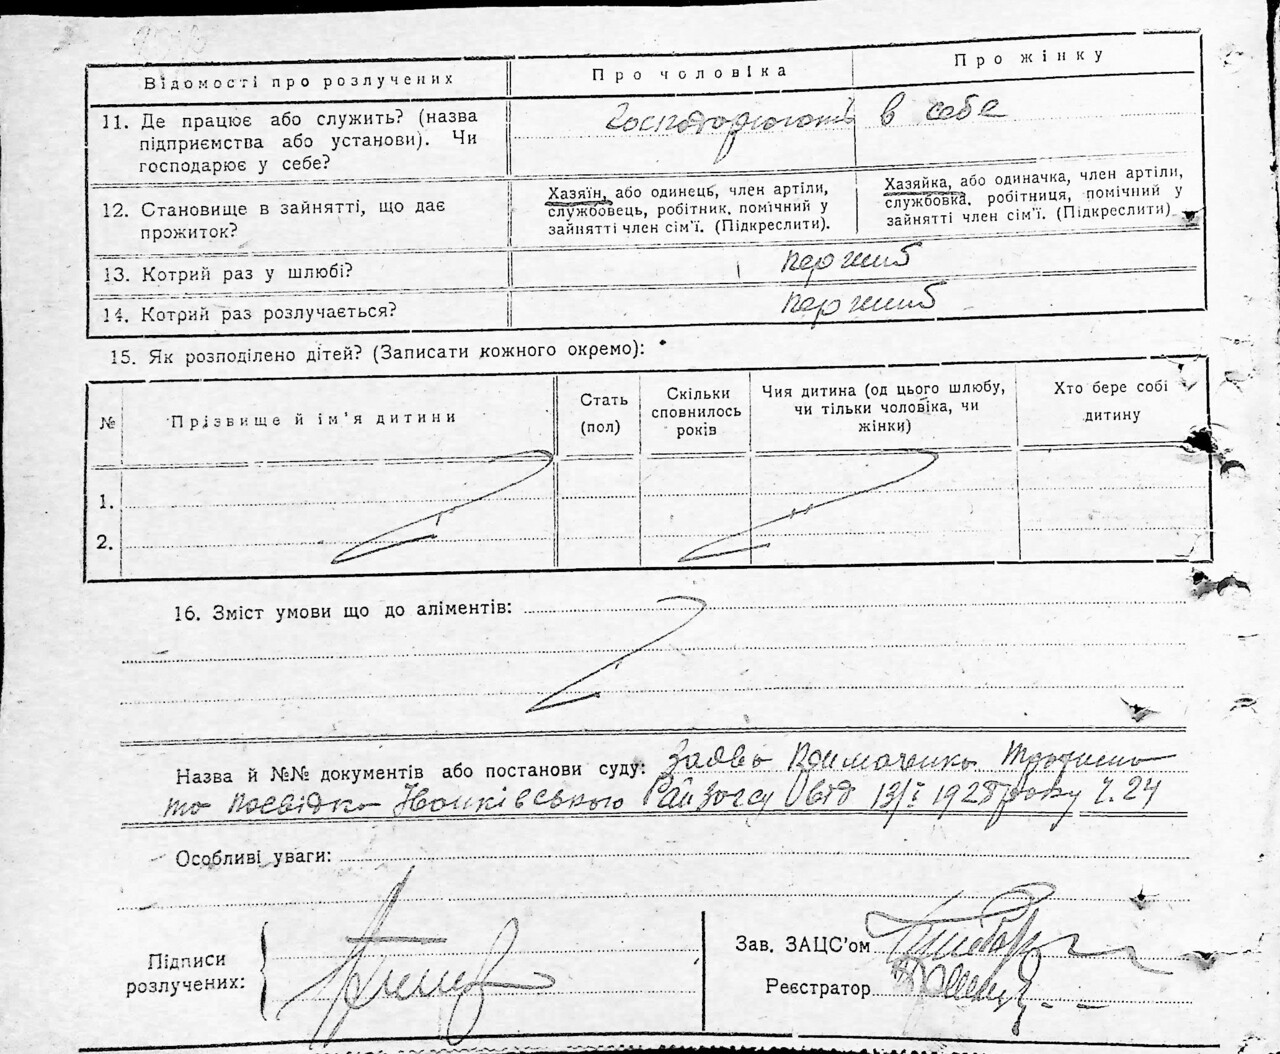 Відомості про розлучених
Про чоловіка
Про жінку
11. Де працює або служить? (назва
підприємства або установи). Чи
господарює у себе?
Господарюють в себе
12. Становище в зайнятті, що дає
прожиток?
Хазяїн, або одинець, член артіли,
службовець, робітник, помічний у
зайнятті член сім'ї. (Підкреслити).
Хазяйка, або одиначка, член артіли,
службовка, робітниця, помічний у
зайнятті член сім'ї. (Підкреслити)
13. Котрий раз у шлюбі?
14. Котрий раз розлучається?
15. Як розподілено дітей? (Записати кожного окремо):
№
Прізвище й ім'я дитини
Стать
(пол)
Скільки
сповнилось
років
Чия дитина (од цього шлюбу,
чи тільки чоловіка, чи
жінки)
Хто бере собі
дитину
1.
2.
16. Зміст умови що до аліментів:
Назва й №№ документів або постанови суду: Заява
та посвідка від 13/I 1928 року Ч. 24
Особливі уваги:
Підписи
розлучених:
Зав. ЗАЦС'ом
Реєстратор